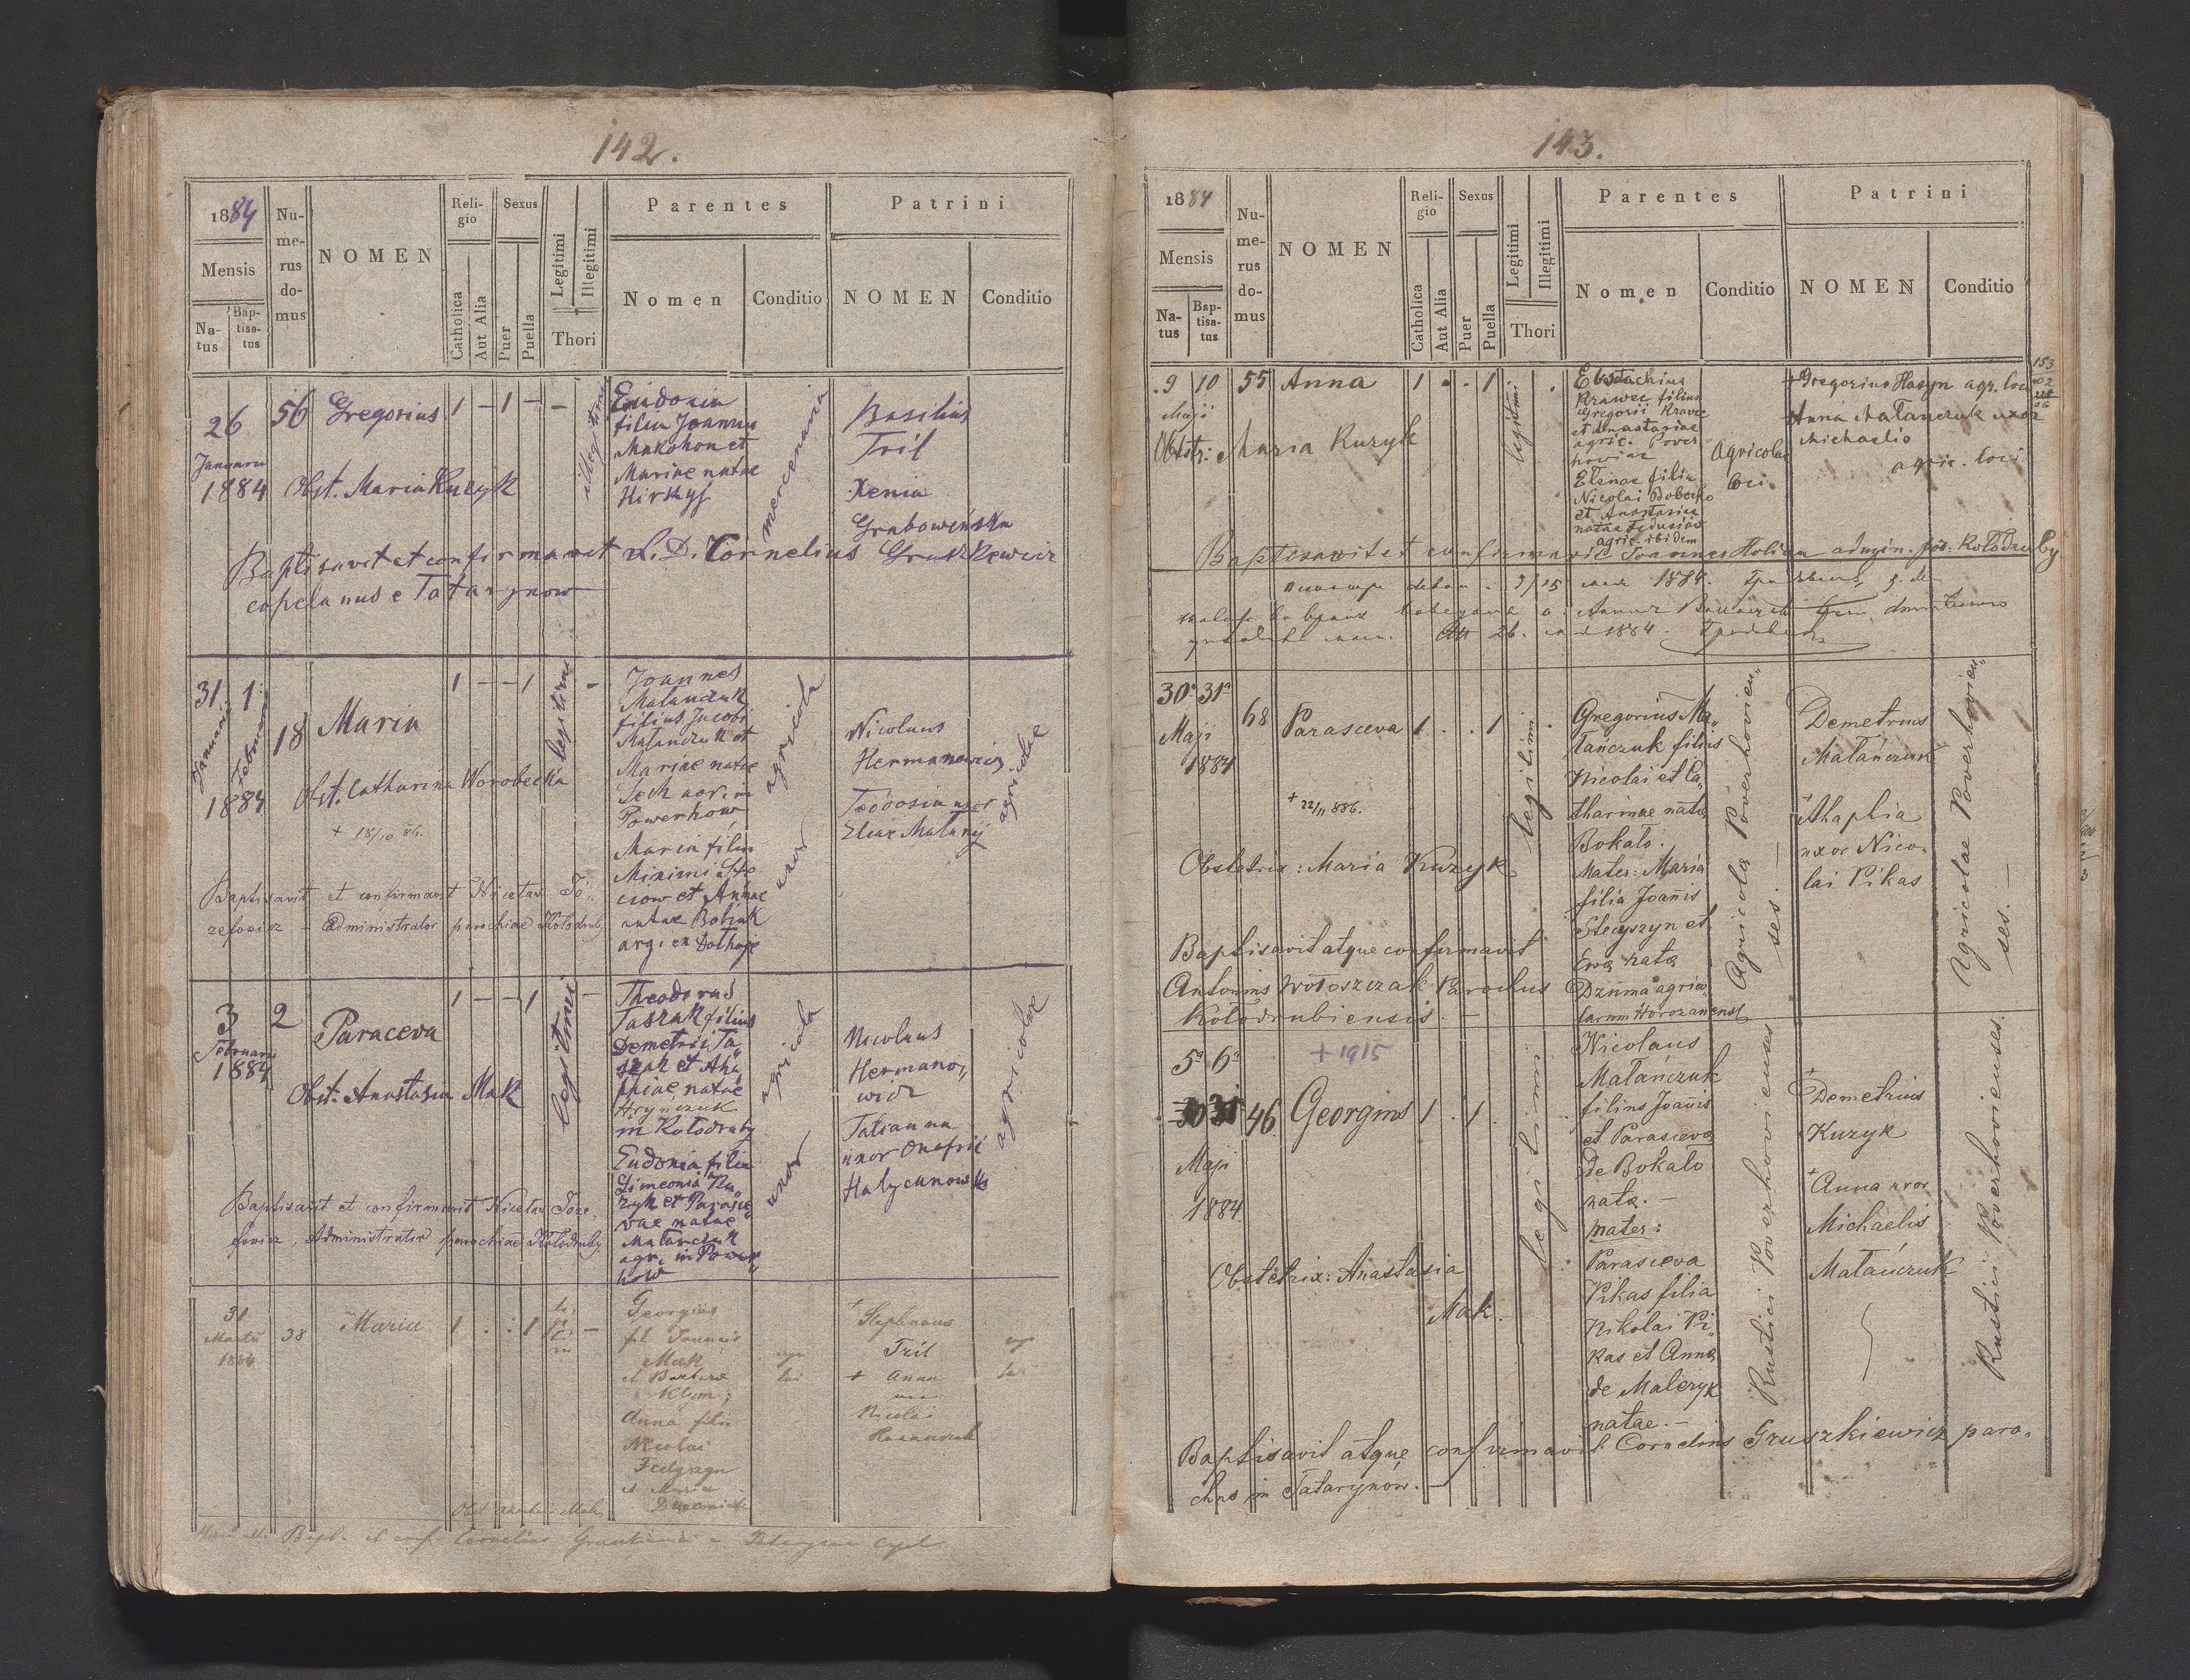 142.
1884
Mensis
Na-
tus
Bap-
tisa-
tus
Nu-
me-
rus
do-
mus
NOMEN
Reli-
gio
Catholica
Aut Alia
Sexus
Puer
Puella
Legitimi
Illegitimi
Thori
Parentes
Nomen
Conditio
Patrini
NOMEN
Conditio
26
Januarii
1884
56
Gregorius
1 - 1 - -
illegitimi
Obst. Maria Kuzyk
Eudoxia
filia Joannis
Makohon et
Mariae natae
Hirkyj
mercenaria
Basilius
Tril
Xenia
Grabowińska
Baptisavit et confirmavit L. D. Cornelius Gruszkewicz
capelanus e Tatarynow
31 1
Januarii
Februarii
1884
18
Maria
1 - - 1
legitimi
-
Obst. Catharina Worobecka
+ 18/10 86.
Joannes
Matanczuk
filius Jacobi
Matanczuk et
Mariae natae
Lech agr. in
Powerhow
Maria filia
et Annae
agricola
uxor
Nicolaus
Hermanowicz
Teodosia uxor
Eliae
agricolae
Baptisavit et confirmavit Nicetas Jó-
zefowicz - Administrator parochiae Kołodruby
3
Februarii
1884
2
Paraceva
1 - - 1
legitimi
-
Obst. Anastasia Mak
Theodorus
Taszak filius
Demetrii Ta„
szak et Aha„
phiae natae
Hrynczuk
in Kołodruby
Eudoxia filia
Simeonis Ku„
zyk et Parasce„
vae natae
Matanczuk
agr. in Power„
how
agricola
uxor
Nicolaus
Hermano„
wicz
Tatianna
uxor Onofrii
agricolae
Baptisavit et confirmavit Nicetas Józe„
fowicz, Administrator parochiae Kołodruby
31
Martii
1884
38
Maria
1 . . 1
-
Georgius
fil. Joannis
Mak
et Barbara
Klym;
Anna filia
Nicolai
et Maria
+ Stephanus
Tril
+ Anna
Nicolai
Bapt. et conf. Cornelius
143.
1884
Mensis
Na-
tus
Bap-
tisa-
tus
Nu-
me-
rus
do-
mus
NOMEN
Reli-
gio
Catholica
Aut Alia
Sexus
Puer
Puella
Legitimi
Illegitimi
Thori
Parentes
Nomen
Conditio
Patrini
NOMEN
Conditio
9 10
Maji
55
Anna
1 . . 1
legitimi
Obstr: Maria Kuzyk
Eustachius
Krawec filius
Gregorii Krawec
et Anastasiae
agric. Power
howiae
Elenae filia
Nicolai
et Anastasiae
natae
agric. ibidem
Agricolae
loci
+ Gregorius Hasyn agr. loci
Anna Matanczuk uxor
Michaelis
agric. loci
153
Baptisavit et confirmavit Joannes Holian admin. par. Kołodruby
1884.
26. 1884.
30ª 31ª
Maji
1884
68
Parasceva
1 . . 1
legitimi
+ 22/11 886.
Obstetrix: Maria Kuzyk
Gregorius Ma„
tańczuk filius
Nicolai et Ca„
tharinae nata
Bokalo.
Mater: Maria
filia Joanis
Stecyszyn et
Ewa nata
Dzuma agrico„
larum Horożanens.
Agricola Powerhovien„
ses. -
Demetrius
Matańczuk
+ Ahaphia
uxor Nico„
lai Pikas
Agricolae Powerhovien„
ses. -
Baptisavit atque confirmavit
Antonius Wołoszczak Parochus
Kołodrubiensis. -
5ª 6ª
+ 1915
30 31
Maji
1884
46
Georgius
1 . 1
legitimi
Obstetrix: Anastasia
Mak.
Nicolaus
Matańczuk
filius Joanis
et Parasceva
de Bokalo
nata. -
mater:
Parasceva
Pikas filia
Nikolai Pi„
kas et Anna
de Maleryk
natae. -
Rustici Powerhovienses
+ Demetrius
Kuzyk
+ Anna uxor
Michaelis
Matańczuk
Rustici Powerhovienses.
Baptisavit atque confirmavit Cornelius Gruszkiewicz paro„
chus in Tatarynow. -